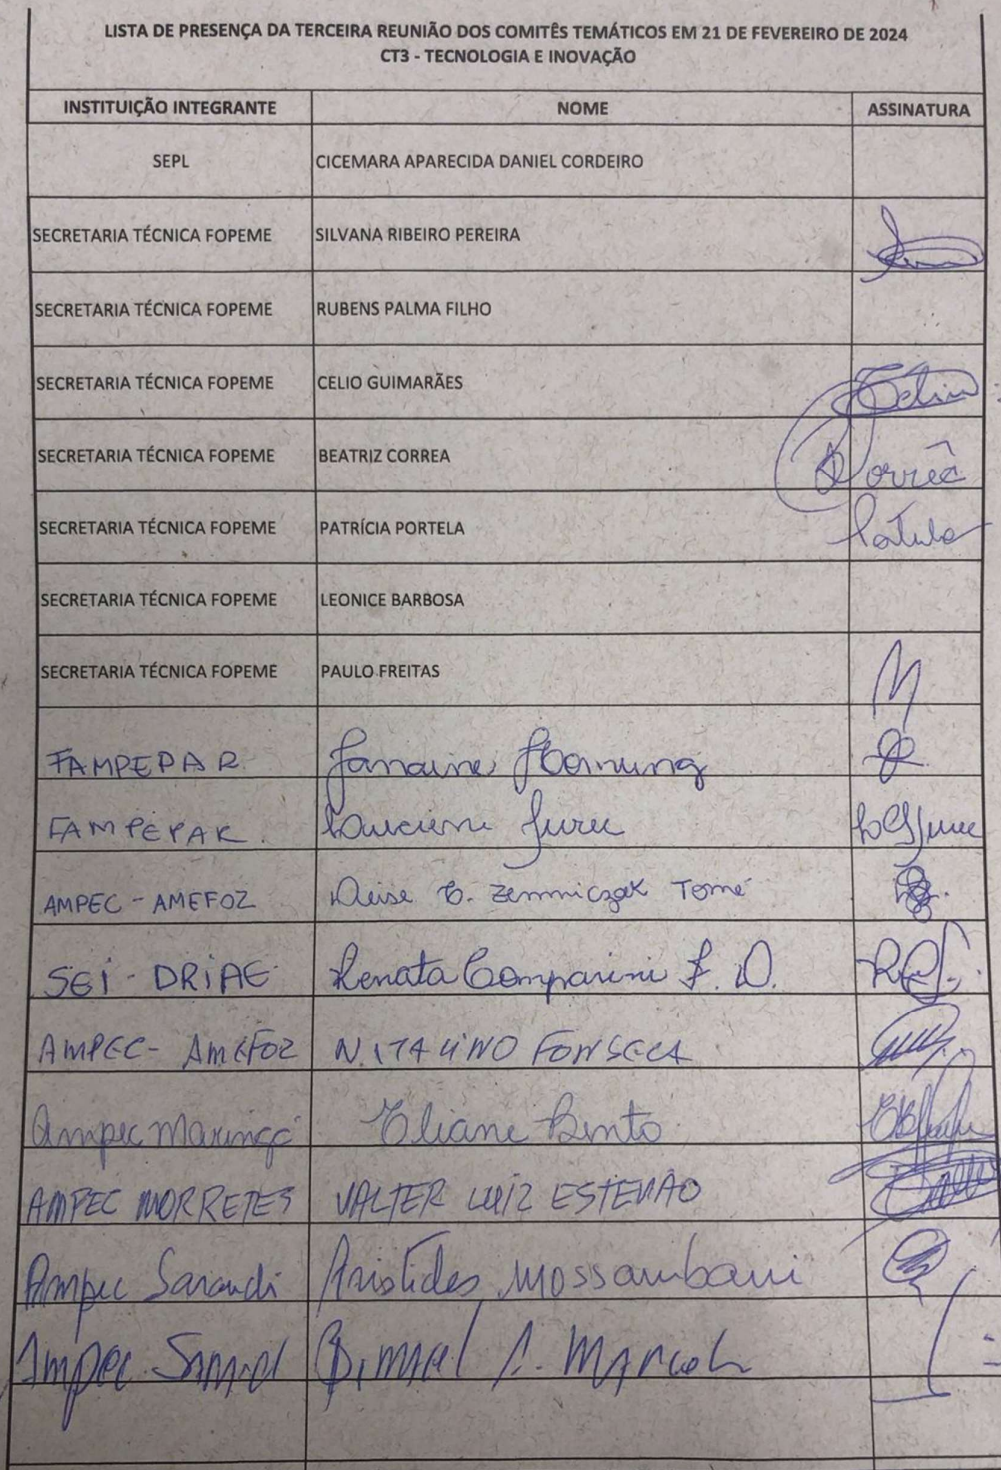 LISTA DE PRESENÇA DA TERCEIRA REUNIÃO DOS COMITÊS TEMÁTICOS EM 21 DE FEVEREIRO DE 2024
CT3 - TECNOLOGIA E INOVAÇÃO
INSTITUIÇÃO INTEGRANTE NOME ASSINATURA
SEPL CICEMARA APARECIDA DANIEL CORDEIRO
SECRETARIA TÉCNICA FOPEME SILVANA RIBEIRO PEREIRA
SECRETARIA TÉCNICA FOPEME RUBENS PALMA FILHO
SECRETARIA TÉCNICA FOPEME CELIO GUIMARÃES
SECRETARIA TÉCNICA FOPEME BEATRIZ CORREA
SECRETARIA TÉCNICA FOPEME PATRÍCIA PORTELA
SECRETARIA TÉCNICA FOPEME LEONICE BARBOSA
SECRETARIA TÉCNICA FOPEME PAULO FREITAS
FAMPEPAR Janaine Hornung
FAMPEPAR
AMPEC - AMEFOZ Deise Tomé
SEI - DRIAE Renata Comparini F. D.
AMPEC - AMEFOZ NATALINO FONSECA
Ampec Maringá Eliane Bento
AMPEC MORRETES VALTER LUIZ ESTEVÃO
Ampec Sarandi Aristides Mossambani
Ampec